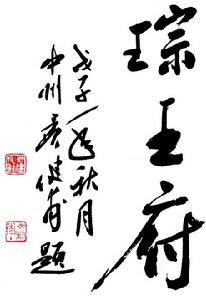 琮王府
戊子年秋月
中州秦健甫题